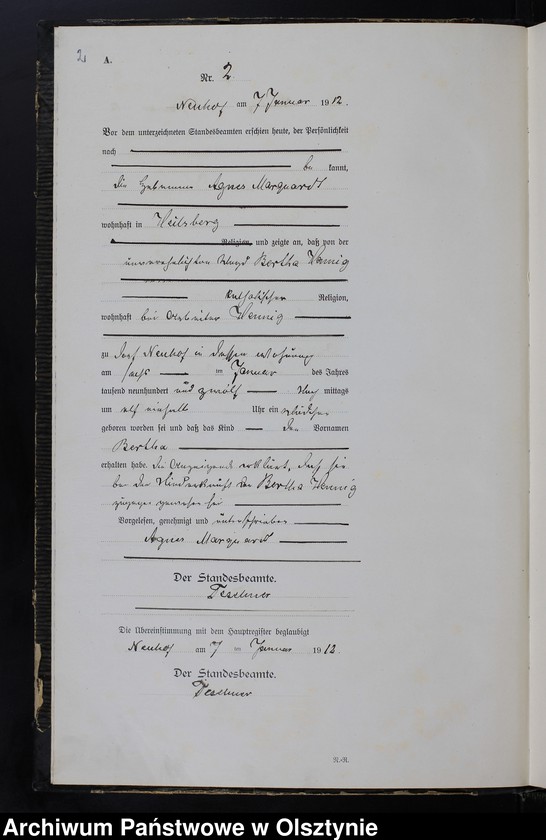 2
A.
Nr. 2
Neuhof am 7 Januar 1912.
Vor dem unterzeichneten Standesbeamten erschien heute, der Persönlichkeit
nach
be kannt,
die Hebamme Agnes Marquardt
wohnhaft in Heilsberg
Religion, und zeigte an, daß von der
unverehelichten Magd Bertha Hennig
katholischer Religion,
wohnhaft bei Arbeiter Hennig
zu Dorf Neuhof in dessen Wohnung
am sechs im Januar des Jahres
tausend neunhundert und zwölf Nach mittags
um elf einhalb Uhr ein
geboren worden sei und daß das Kind den Vornamen
Bertha
erhalten habe. Die Anzeigende erklärt, daß sie
bei der Niederkunft der Bertha Hennig
zugegen gewesen sei
Vorgelesen, genehmigt und unterschrieben
Agnes Marquardt
Der Standesbeamte.
Teschner
Die Übereinstimmung mit dem Hauptregister beglaubigt
Neuhof am 7 im Januar 1912.
Der Standesbeamte.
Teschner
N.-R.
Archiwum Państwowe w Olsztynie